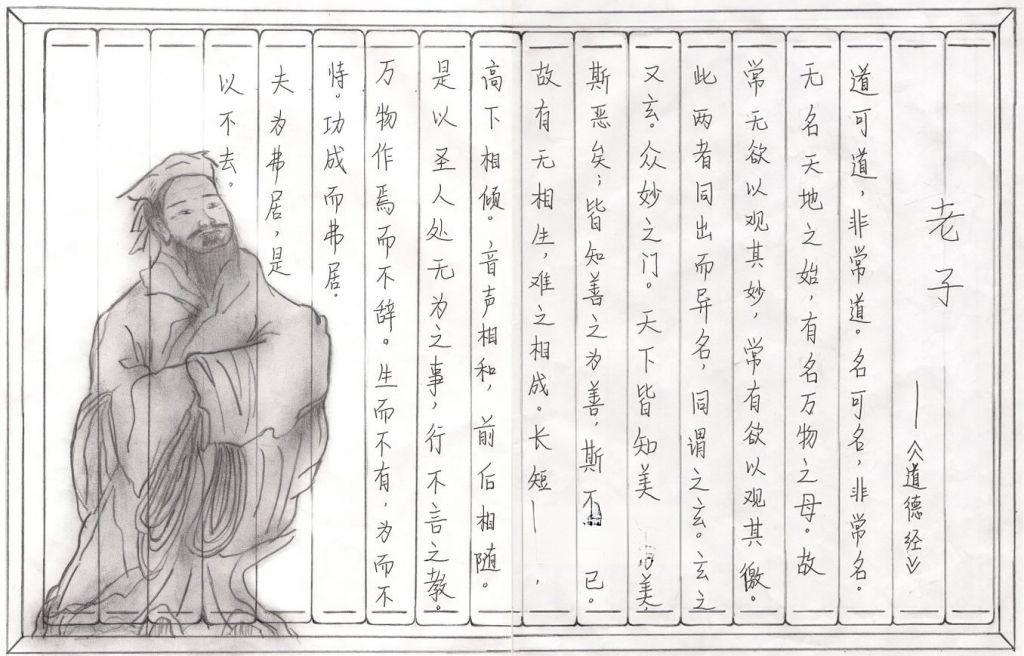 老子
——《道德经》
道可道，非常道。名可名，非常名。
无名天地之始，有名万物之母。故
常无欲以观其妙，常有欲以观其徼。
此两者同出而异名，同谓之玄。玄之
又玄。众妙之门。天下皆知美美，
斯恶矣；皆知善之为善，斯不已。
故有无相生，难之相成。长短，
高下相倾。音声相和，前后相随。
是以圣人处无为之事，行不言之教。
万物作焉而不辞。生而不有，为而不
恃。功成而弗居。
夫为弗居，是
以不去。